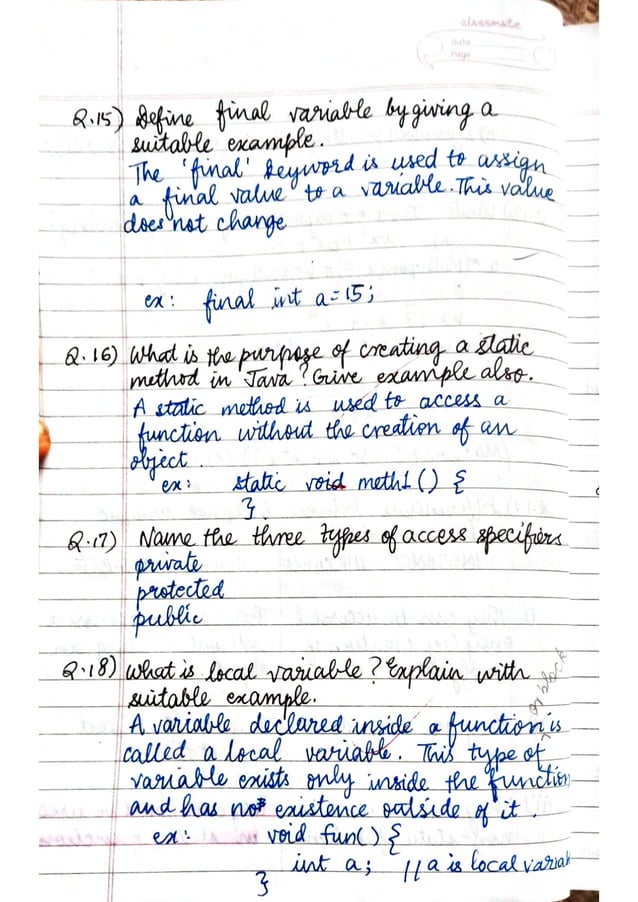 classmate
Date
Page
Q.15) Define final variable by giving a
suitable example.
The 'final' keyword is used to assign
a final value to a variable. This value
does not change
ex: final int a=15;
Q.16) What is the purpose of creating a static
method in Java? Give example also.
A static method is used to access a
function without the creation of an
object.
ex: static void meth1() {
}
Q.17) Name the three types of access specifiers
private
protected
public
Q.18) What is local variable? Explain with
suitable example.
or block
A variable declared inside a function is
called a local variable. This type of
variable exists only inside the function
and has no existence outside of it.
ex: void fun() {
int a; //a is local variab
}